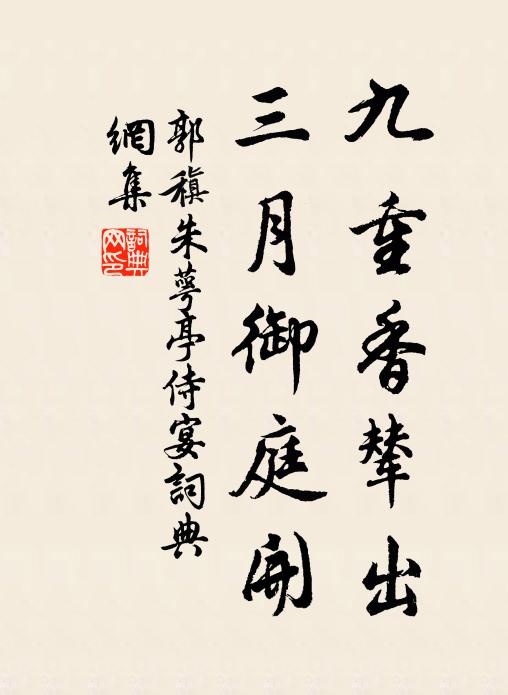 九重香輦出
三月御庭開
郭稹朱萼亭侍宴詞典
網集
詞典網印